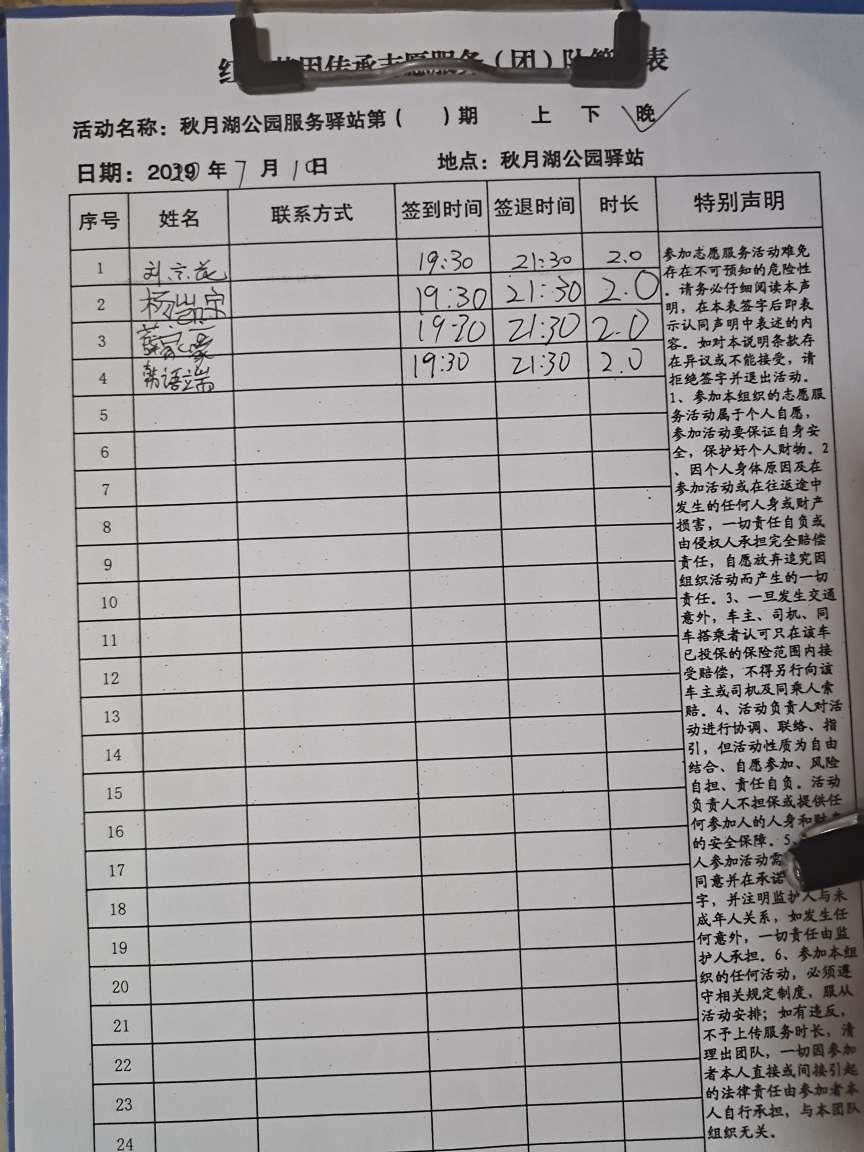 传承志愿服务（团）队 表
活动名称：秋月湖公园服务驿站第（ ）期 上 下 晚
日期：2020年7月10日 地点：秋月湖公园驿站
序号 姓名 联系方式 签到时间 签退时间 时长 特别声明
1 19:30 21:30 2.0
2 19:30 21:30 2.0
3 19:30 21:30 2.0
4 韩语端 19:30 21:30 2.0
5
6
7
8
9
10
11
12
13
14
15
16
17
18
19
20
21
22
23
24
参加志愿服务活动难免
存在不可预知的危险性
。请务必仔细阅读本声
明，在本表签字后即表
示认同声明中表述的内
容。如对本说明条款存
在异议或不能接受，请
拒绝签字并退出活动。
1、参加本组织的志愿服
务活动属于个人自愿，
参加活动要保证自身安
全，保护好个人财物。2
、因个人身体原因及在
参加活动或在往返途中
发生的任何人身或财产
损害，一切责任自负或
由侵权人承担完全赔偿
责任，自愿放弃追究因
组织活动而产生的一切
责任。3、一旦发生交通
意外，车主、司机、同
车搭乘者认可只在该车
已投保的保险范围内接
受赔偿，不得另行向该
车主或司机及同乘人索
赔。4、活动负责人对活
动进行协调、联络、指
引，但活动性质为自由
结合、自愿参加、风险
自担、责任自负。活动
负责人不担保或提供任
何参加人的人身和财
的安全保障。5、
人参加活动需
同意并在承诺
字，并注明监护人与未
成年人关系，如发生任
何意外，一切责任由监
护人承担。6、参加本组
织的任何活动，必须遵
守相关规定制度，服从
活动安排；如有违反，
不予上传服务时长，清
理出团队，一切因参加
者本人直接或间接引起
的法律责任由参加者本
人自行承担，与本团队
组织无关。